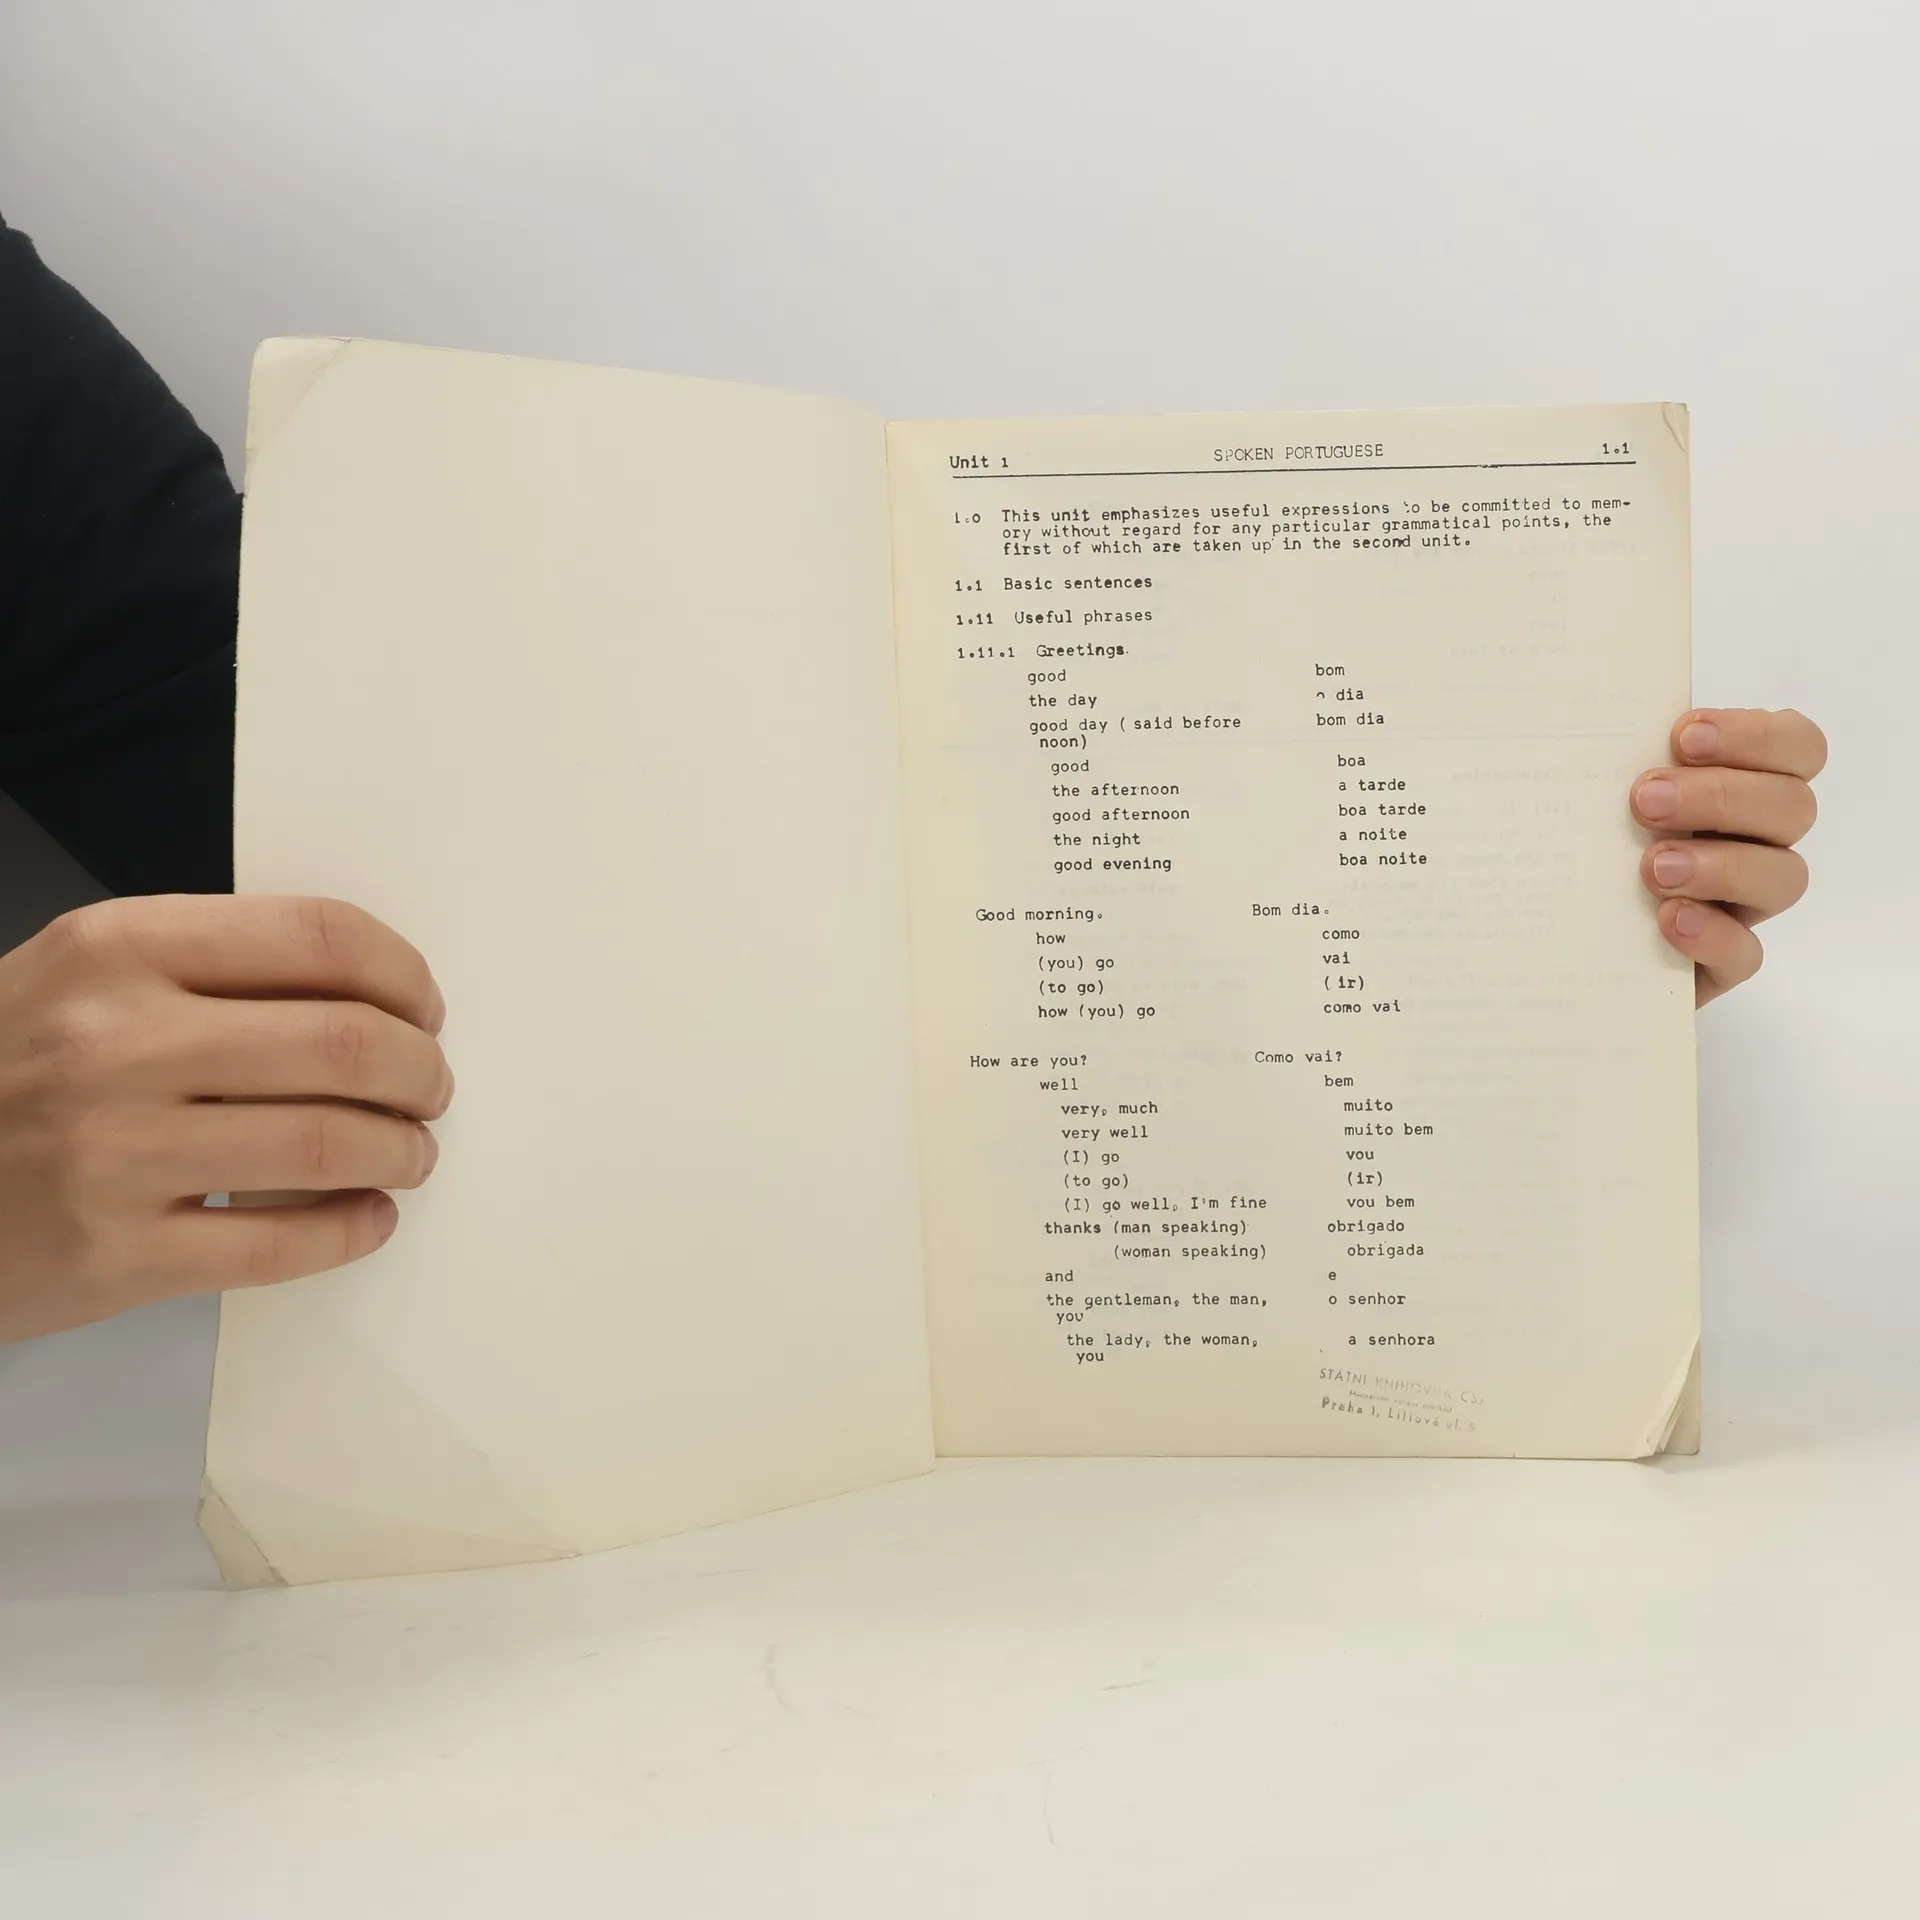 Unit 1 SPOKEN PORTUGUESE 1.1
1.0 This unit emphasizes useful expressions to be committed to mem-
ory without regard for any particular grammatical points, the
first of which are taken up in the second unit.
1.1 Basic sentences
1.11 Useful phrases
1.11.1 Greetings.
good bom
the day o dia
good day ( said before bom dia
noon)
good boa
the afternoon a tarde
good afternoon boa tarde
the night a noite
good evening boa noite
Good morning. Bom dia.
how como
(you) go vai
(to go) ( ir)
how (you) go como vai
How are you? Como vai?
well bem
very, much muito
very well muito bem
(I) go vou
(to go) (ir)
(I) go well, I'm fine vou bem
thanks (man speaking) obrigado
(woman speaking) obrigada
and e
the gentleman, the man, o senhor
you
the lady, the woman, a senhora
you
STÁTNI KNIHOVNA
Praha 1, Liliová ul. 5